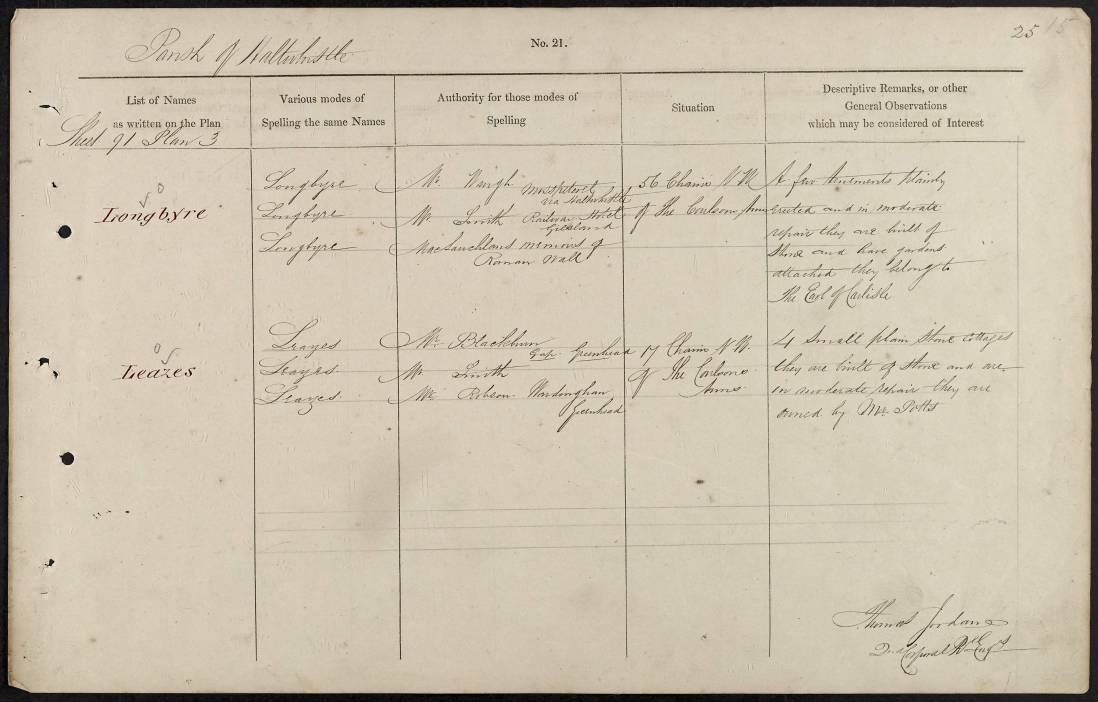 25 15
No. 21.
Parish of Haltwhistle
List of Names
as written on the Plan
Various modes of
Spelling the same Names
Authority for those modes of
Spelling
Situation
Descriptive Remarks, or other
General Observations
which may be considered of Interest
Sheet 91 Plan 3
Longbyre
Longbyre
Longbyre
Longbyre
Mr. Waugh Mosspeteral
via Haltwhistle
Mr. Smith Railway Hotel
Gilsland
MacLauchlans memoirs of
Roman Wall
56 Chains N.W.
of The Coulson Arms
A few tenements plainly
erected and in moderate
repair they are built of
Stone and have gardens
attached they belong to
The Earl of Carlisle
Leazes
Leazes
Leazes
Leazes
Mr. Blackburn
Gap Greenhead
Mr. Smith
Mr. Robson
Greenhead
17 Chains N.W.
of The Coulsons
Arms
4 Small plain Stone cottages
they are built of Stone and are
in moderate repair they are
owned by Mr. Potts
Thomas Jordan
2nd Corporal Rl. Engrs